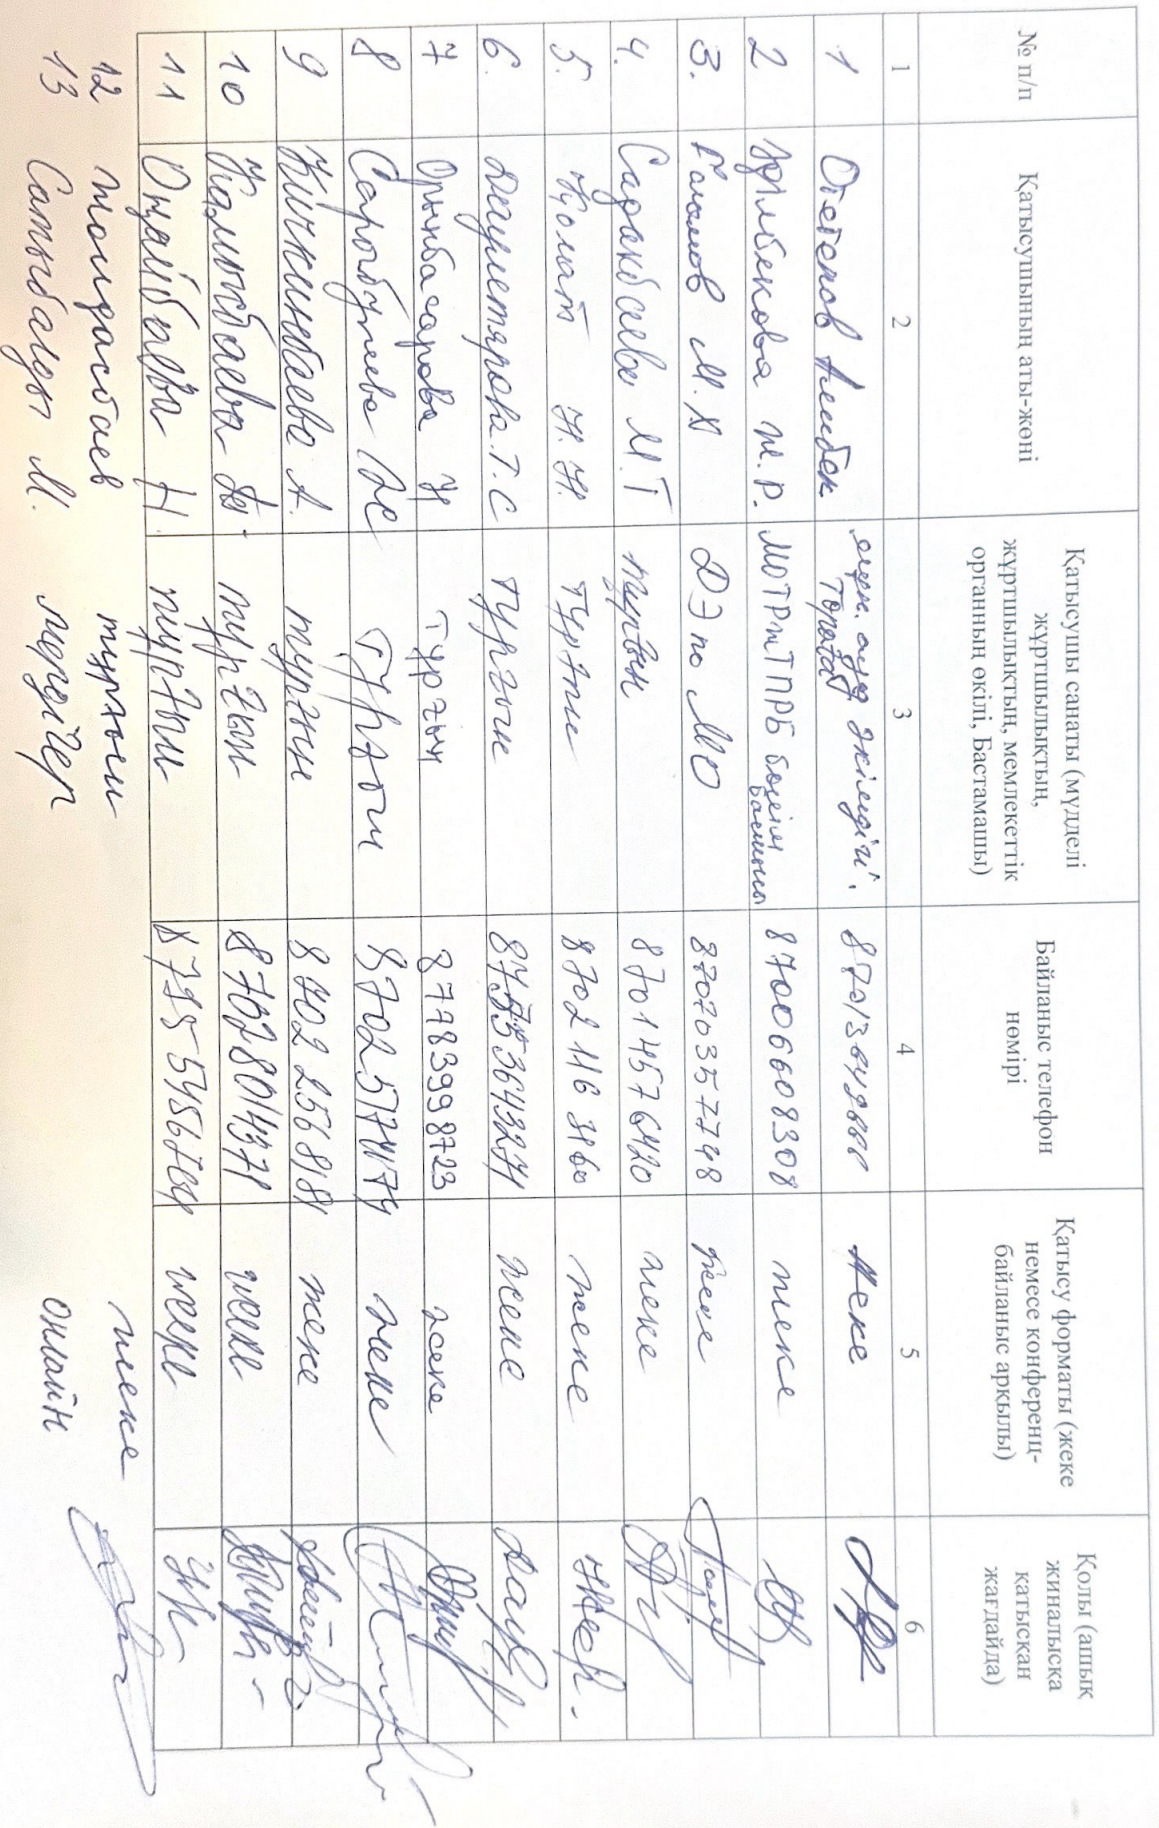 № п/п
Қатысушының аты-жөні
Қатысушы санаты (мүдделі
жұртшылықтың,
жұртшылықтың, мемлекеттік
органның өкілі, Бастамашы)
Байланыс телефон
нөмірі
Қатысу форматы (жеке
немесе конференц-
байланыс арқылы)
Қолы (ашық
жиналысқа
қатысқан
жағдайда)
1 2 3 4 5 6
1 Отегенов Алибек әкімдігі". жеке
2 Ж.Р. МОТРжТПРБ бөлім басшысы 87006608308 жеке
3. М.Х ДЭ по МО 87070357798 жеке
4. Садакбаева М.Т тұрғын 87014576420 жеке
5. Н.Н. тұрғын 8702 116 3160 жеке
6. Даулетярова.Т.С тұрғын жеке
7 Орынбасарова Н тұрғын 87783998723 жеке
8 Сарыбулева Ж тұрғын 87025174179 жеке
9 Кичкинбаева А. тұрғын 8702 2568181 жеке
10 Камысбаева тұрғын 87028014371 жеке
11 Оңайбаева Н. тұрғын жеке
12 Жолдасбаев тұрғын жеке
13 Сатыбалды М. мердігер онлайн